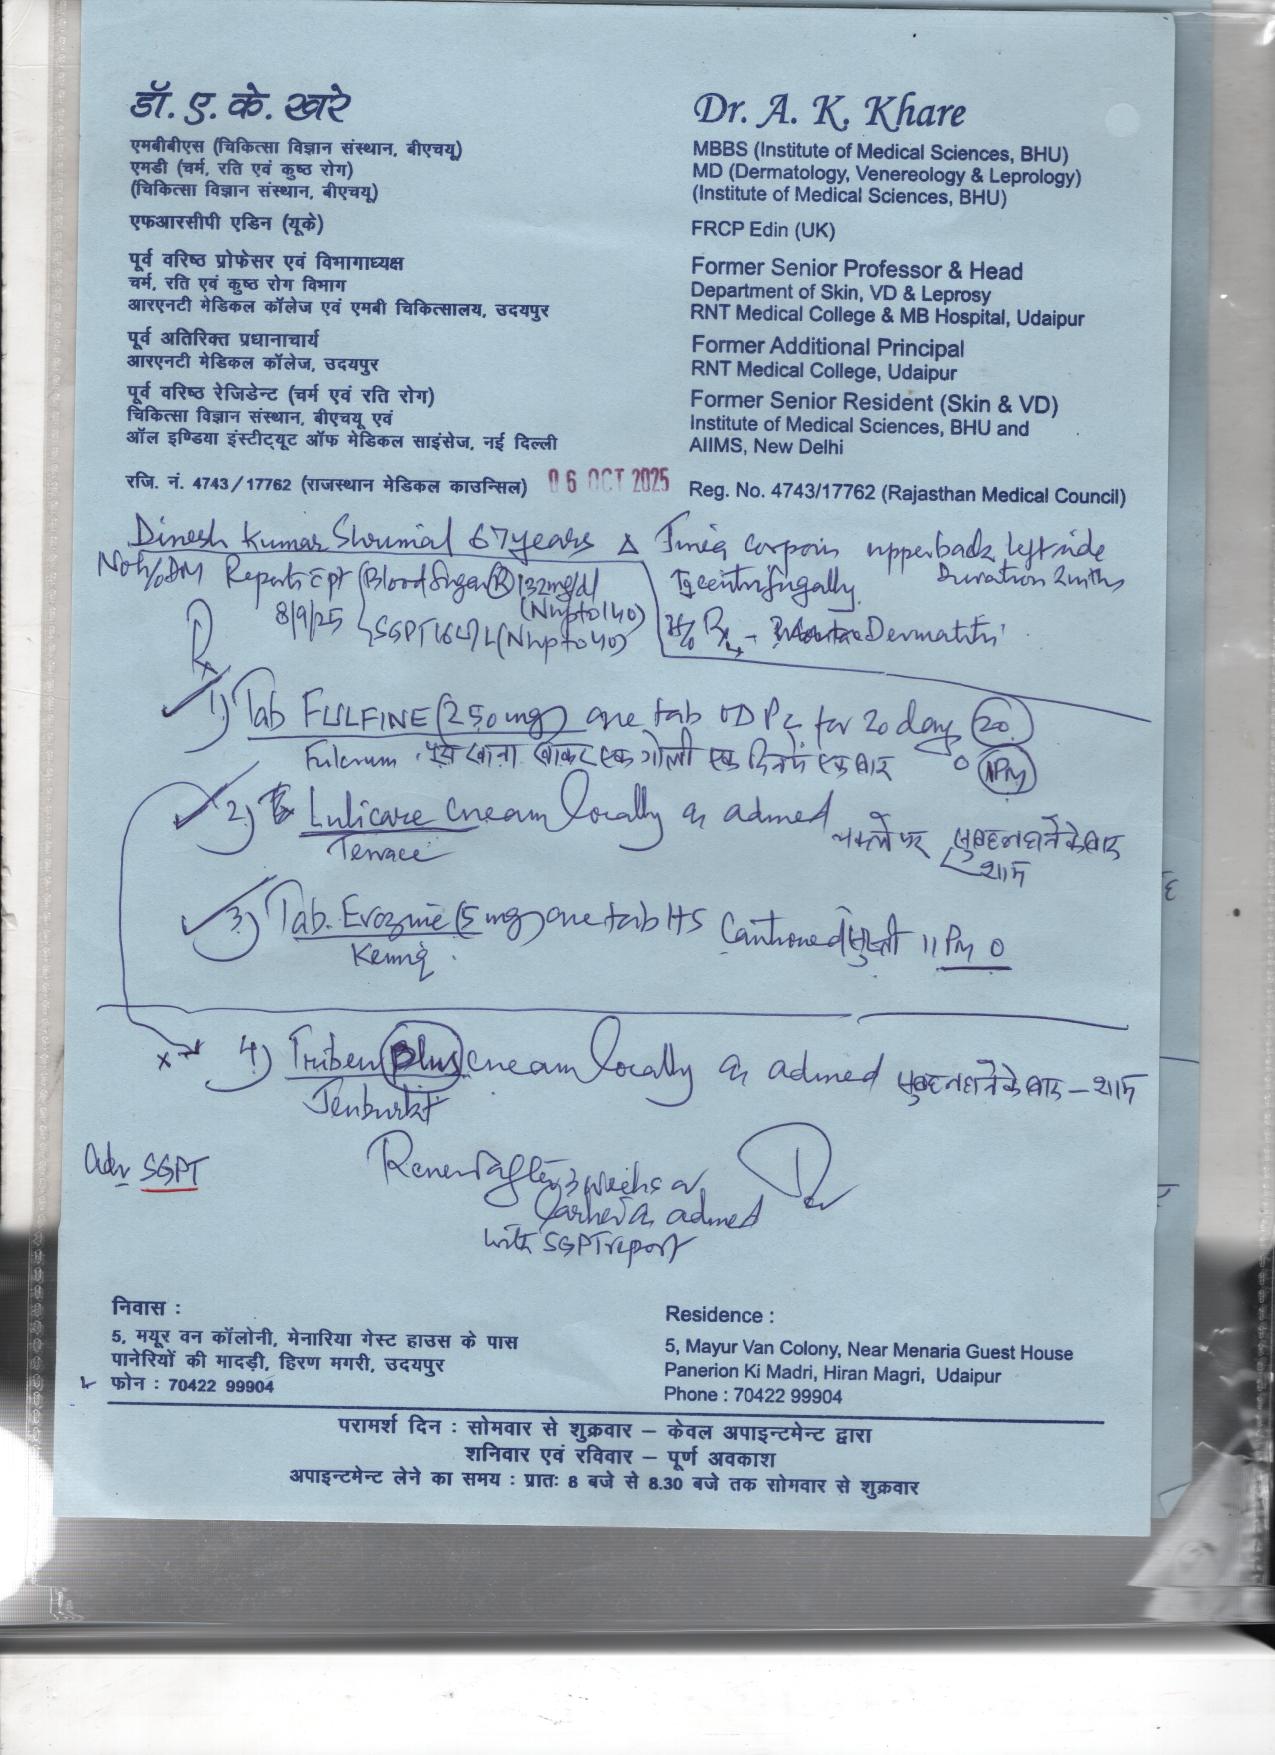 डॉ. ए. के. खरे
एमबीबीएस (चिकित्सा विज्ञान संस्थान, बीएचयू)
एमडी (चर्म, रति एवं कुष्ठ रोग)
(चिकित्सा विज्ञान संस्थान, बीएचयू)
एफआरसीपी एडिन (यूके)
पूर्व वरिष्ठ प्रोफेसर एवं विभागाध्यक्ष
चर्म, रति एवं कुष्ठ रोग विभाग
आरएनटी मेडिकल कॉलेज एवं एमबी चिकित्सालय, उदयपुर
पूर्व अतिरिक्त प्रधानाचार्य
आरएनटी मेडिकल कॉलेज, उदयपुर
पूर्व वरिष्ठ रेजिडेन्ट (चर्म एवं रति रोग)
चिकित्सा विज्ञान संस्थान, बीएचयू एवं
ऑल इण्डिया इंस्टीट्यूट ऑफ मेडिकल साइंसेज, नई दिल्ली
रजि. नं. 4743/17762 (राजस्थान मेडिकल काउन्सिल)
Dr. A. K. Khare
MBBS (Institute of Medical Sciences, BHU)
MD (Dermatology, Venereology & Leprology)
(Institute of Medical Sciences, BHU)
FRCP Edin (UK)
Former Senior Professor & Head
Department of Skin, VD & Leprosy
RNT Medical College & MB Hospital, Udaipur
Former Additional Principal
RNT Medical College, Udaipur
Former Senior Resident (Skin & VD)
Institute of Medical Sciences, BHU and
AIIMS, New Delhi
06 OCT 2025
Reg. No. 4743/17762 (Rajasthan Medical Council)
Dinesh Kumar 67 years Δ Tinea corporis upper back left side
Duration 2 mths
No h/o DM Reports Blood Sugar (R) 132mg/dl
centrifugally
8/9/25 (N upto 140)
SGPT 164 U/L (N upto 40)
H/o Rx - Dermatitis
Rx
1) Tab FULFINE (250mg) one tab OD PC for 20 days (20)
Fulcrum खाना खाकर एक गोली एक दिन में एक बार 1PM
2) Lulicare cream locally as advised चकत्ते पर सुबह नहाने के बाद
शाम
3) Tab. (5mg) one tab HS Cautioned सुस्ती 11 PM 0
4) Triben Plus cream locally as advised सुबह नहाने के बाद – शाम
Adv SGPT
Review after 3 weeks or
earlier as advised
with SGPT report
निवास :
5, मयूर वन कॉलोनी, मेनारिया गेस्ट हाउस के पास
पानेरियों की मादड़ी, हिरण मगरी, उदयपुर
फोन : 70422 99904
Residence :
5, Mayur Van Colony, Near Menaria Guest House
Panerion Ki Madri, Hiran Magri, Udaipur
Phone : 70422 99904
परामर्श दिन : सोमवार से शुक्रवार – केवल अपाइन्टमेन्ट द्वारा
शनिवार एवं रविवार – पूर्ण अवकाश
अपाइन्टमेन्ट लेने का समय : प्रातः 8 बजे से 8.30 बजे तक सोमवार से शुक्रवार